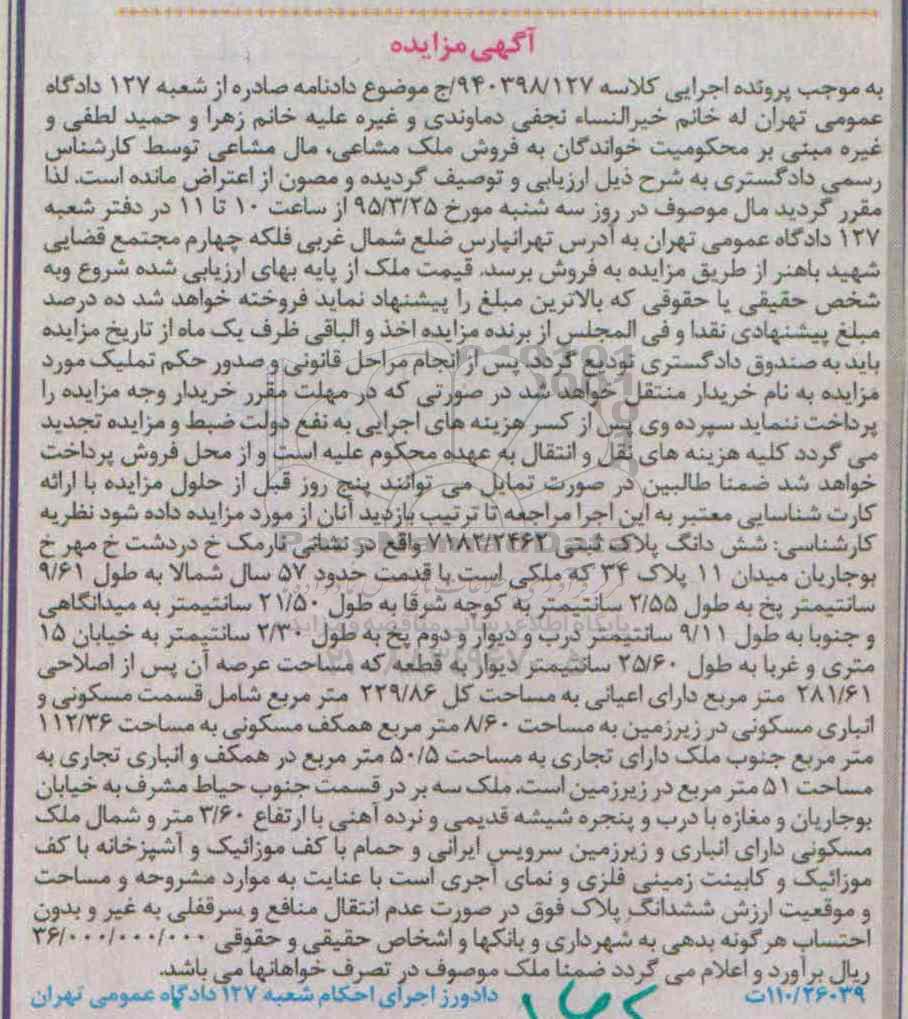 آگهی مزایده
به موجب پرونده اجرایی کلاسه ۹۴۰۳۹۸/۱۲۷/ج موضوع دادنامه صادره از شعبه ۱۲۷ دادگاه
عمومی تهران له خانم خیرالنساء نجفی دماوندی و غیره علیه خانم زهرا و حمید لطفی و
غیره مبنی بر محکومیت خواندگان به فروش ملک مشاعی، مال مشاعی توسط کارشناس
رسمی دادگستری به شرح ذیل ارزیابی و توصیف گردیده و مصون از اعتراض مانده است. لذا
مقرر گردید مال موصوف در روز سه شنبه مورخ ۹۵/۳/۲۵ از ساعت ۱۰ تا ۱۱ در دفتر شعبه
۱۲۷ دادگاه عمومی تهران به آدرس تهرانپارس ضلع شمال غربی فلکه چهارم مجتمع قضایی
شهید باهنر از طریق مزایده به فروش برسد. قیمت ملک از پایه بهای ارزیابی شده شروع وبه
شخص حقیقی یا حقوقی که بالاترین مبلغ را پیشنهاد نماید فروخته خواهد شد ده درصد
مبلغ پیشنهادی نقدا و فی المجلس از برنده مزایده اخذ و الباقی ظرف یک ماه از تاریخ مزایده
باید به صندوق دادگستری تودیع گردد. پس از انجام مراحل قانونی و صدور حکم تملیک مورد
مزایده به نام خریدار منتقل خواهد شد در صورتی که در مهلت مقرر خریدار وجه مزایده را
پرداخت ننماید سپرده وی پس از کسر هزینه های اجرایی به نفع دولت ضبط و مزایده تجدید
می گردد کلیه هزینه های نقل و انتقال به عهده محکوم علیه است و از محل فروش پرداخت
خواهد شد ضمنا طالبین در صورت تمایل می توانند پنج روز قبل از حلول مزایده با ارائه
کارت شناسایی معتبر به این اجرا مراجعه تا ترتیب بازدید آنان از مورد مزایده داده شود نظریه
کارشناسی: شش دانگ پلاک ثبتی ۷۱۸۲/۲۴۶۲ واقع در نشانی نارمک خ دردشت خ مهر خ
بوجاریان میدان ۱۱ پلاک ۳۴ که ملکی است با قدمت حدود ۵۷ سال شمالا به طول ۹/۶۱
سانتیمتر پخ به طول ۲/۵۵ سانتیمتر به کوچه شرقا به طول ۲۱/۵۰ سانتیمتر به میدانگاهی
و جنوبا به طول ۹/۱۱ سانتیمتر درب و دیوار و دوم پخ به طول ۲/۳۰ سانتیمتر به خیابان ۱۵
متری و غربا به طول ۲۵/۶۰ سانتیمتر دیوار به قطعه که مساحت عرصه آن پس از اصلاحی
۲۸۱/۶۱ متر مربع دارای اعیانی به مساحت کل ۲۲۹/۸۶ متر مربع شامل قسمت مسکونی و
انباری مسکونی در زیرزمین به مساحت ۸/۶۰ متر مربع همکف مسکونی به مساحت ۱۱۲/۳۶
متر مربع جنوب ملک دارای تجاری به مساحت ۵۰/۵ متر مربع در همکف و انباری تجاری به
مساحت ۵۱ متر مربع در زیرزمین است. ملک سه بر در قسمت جنوب حیاط مشرف به خیابان
بوجاریان و مغازه با درب و پنجره شیشه قدیمی و نرده آهنی با ارتفاع ۳/۶۰ متر و شمال ملک
مسکونی دارای انباری و زیرزمین سرویس ایرانی و حمام با کف موزائیک و آشپزخانه با کف
موزائیک و کابینت زمینی فلزی و نمای آجری است با عنایت به موارد مشروحه و مساحت
و موقعیت ارزش ششدانگ پلاک فوق در صورت عدم انتقال منافع و سرقفلی به غیر و بدون
احتساب هر گونه بدهی به شهرداری و بانکها و اشخاص حقیقی و حقوقی ۳۶/۰۰۰/۰۰۰/۰۰۰
ریال برآورد و اعلام می گردد ضمنا ملک موصوف در تصرف خواهانها می باشد.
۱۱۰/۲۶۰۳۹ت دادورز اجرای احکام شعبه ۱۲۷ دادگاه عمومی تهران
ParsNamadData